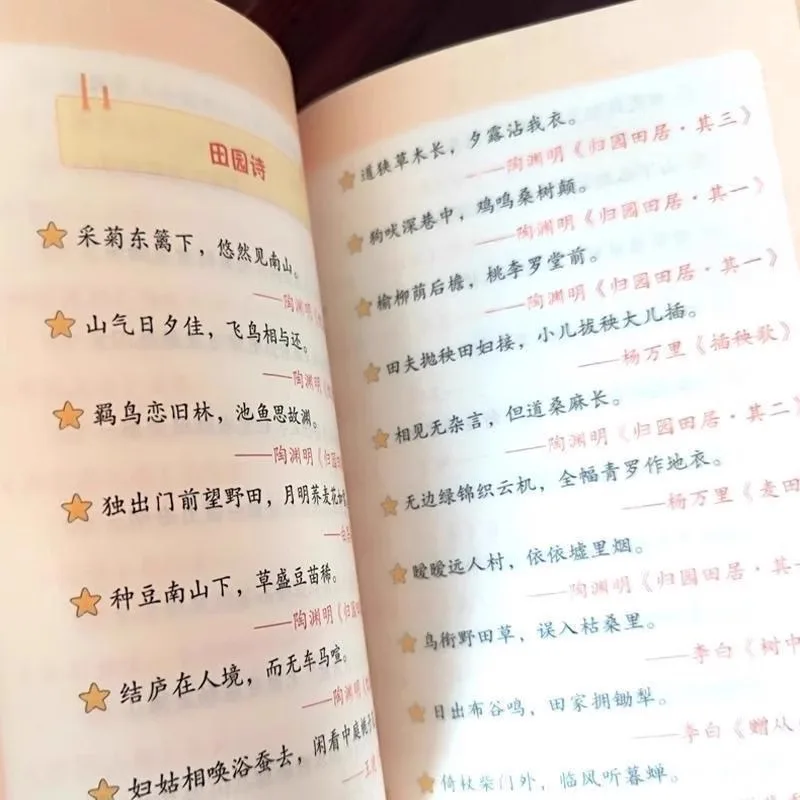 田园诗
采菊东篱下，悠然见南山。
——陶渊明《
山气日夕佳，飞鸟相与还。
——陶渊明《
羁鸟恋旧林，池鱼思故渊。
——陶渊明《归园
独出门前望野田，月明荞麦花如
种豆南山下，草盛豆苗稀。
——陶渊明《归园
结庐在人境，而无车马喧。
——陶渊明《
妇姑相唤浴蚕去，闲看中庭
道狭草木长，夕露沾我衣。
——陶渊明《归园田居·其三》
狗吠深巷中，鸡鸣桑树颠。
——陶渊明《归园田居·其一》
榆柳荫后檐，桃李罗堂前。
——陶渊明《归园田居·其一》
田夫抛秧田妇接，小儿拔秧大儿插。
——杨万里《插秧歌》
相见无杂言，但道桑麻长。
——陶渊明《归园田居·其二》
无边绿锦织云机，全幅青罗作地衣。
——杨万里《麦田
暧暧远人村，依依墟里烟。
——陶渊明《归园田居·其一
鸟衔野田草，误入枯桑里。
——李白《树中
日出布谷鸣，田家拥锄犁。
——李白《赠从
倚杖柴门外，临风听暮蝉。